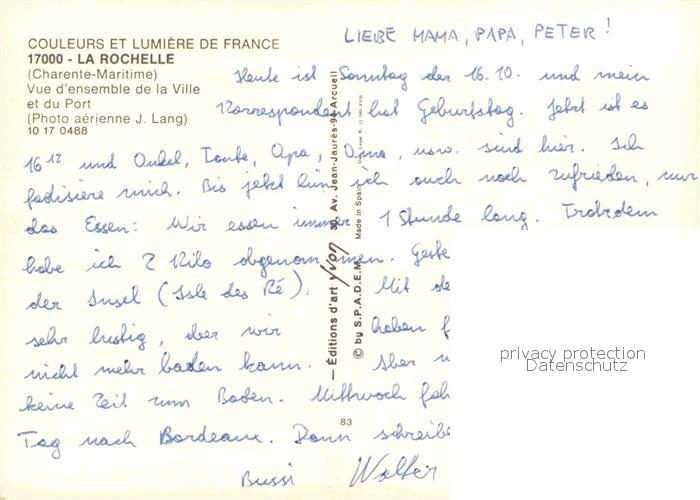 LIEBE MAMA, PAPA, PETER!
COULEURS ET LUMIÈRE DE FRANCE
17000 - LA ROCHELLE
(Charente-Maritime)
Vue d'ensemble de la Ville
et du Port
(Photo aérienne J. Lang)
10 17 0488
Heute ist Sonntag der 16.10. und mein
Korrespondent hat Geburtstag. Jetzt ist es
16¹² und Onkel, Tante, Opa, Oma, usw. sind hier. Ich
fadisiere mich. Bis jetzt bin ich auch noch zufrieden, nur
das Essen: Wir essen immer 1 Stunde lang. Trotzdem
habe ich 2 Kilo abgenommen. Geste
der Insel (Isle des Ré). Mit de
sehr lustig, aber wir haben f
nicht mehr baden kann. Aber w
keine Zeit zum Baden. Mittwoch fah
Tag nach Bordeaux. Dann schreibe
Bussi Walter
— Éditions d'art yvon 30, Av. Jean-Jaurès-94-Arcueil
© by S.P.A.D.E.M. Made in Spain
83
privacy protection
Datenschutz